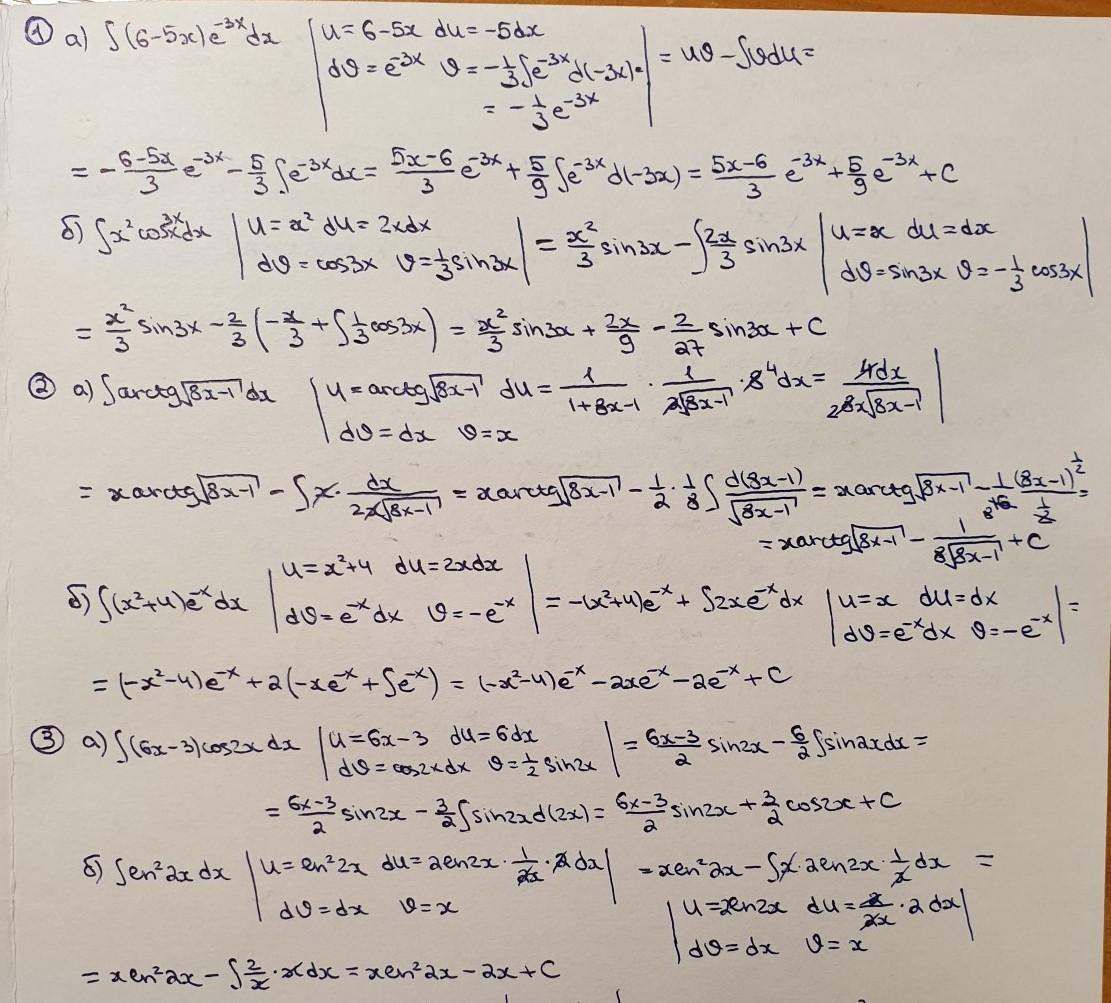 ① а) ∫(6-5x)e^{-3x}dx | u=6-5x du=-5dx
dϑ=e^{-3x} ϑ=-1/3∫e^{-3x}d(-3x)= | = uϑ-∫ϑdu=
= -1/3 e^{-3x}
= -(6-5x)/3 e^{-3x} - 5/3 ∫e^{-3x}dx = (5x-6)/3 e^{-3x} + 5/9 ∫e^{-3x}d(-3x) = (5x-6)/3 e^{-3x} + 5/9 e^{-3x} + C
б) ∫x² cos3x dx | u=x² du=2xdx
dϑ=cos3x ϑ=1/3 sin3x | = x²/3 sin3x - ∫2x/3 sin3x | u=x du=dx
dϑ=sin3x ϑ=-1/3 cos3x |
= x²/3 sin3x - 2/3 (-x/3 + ∫1/3 cos3x) = x²/3 sin3x + 2x/9 - 2/27 sin3x + C
② а) ∫arctg√(8x-1) dx | u=arctg√(8x-1) du = 1/(1+8x-1) · 1/(2√(8x-1)) · 8⁴dx = 4dx/(28x√(8x-1)) |
dϑ=dx ϑ=x
= xarctg√(8x-1) - ∫x· dx/(2x√(8x-1)) = xarctg√(8x-1) - 1/2·1/8 ∫ d(8x-1)/√(8x-1) = xarctg√(8x-1) - 1/(8 16) (8x-1)^{1/2}/(1/2) =
= xarctg√(8x-1) - 1/(8√(8x-1)) + C
б) ∫(x²+4)e^{-x}dx | u=x²+4 du=2xdx
dϑ=e^{-x}dx ϑ=-e^{-x} | = -(x²+4)e^{-x} + ∫2xe^{-x}dx | u=x du=dx
dϑ=e^{-x}dx ϑ=-e^{-x} | =
= (-x²-4)e^{-x} + 2(-xe^{-x} + ∫e^{-x}) = (-x²-4)e^{-x} - 2xe^{-x} - 2e^{-x} + C
③ а) ∫(6x-3)cos2x dx | u=6x-3 du=6dx
dϑ=cos2xdx ϑ=1/2 sin2x | = (6x-3)/2 sin2x - 6/2 ∫sin2xdx =
= (6x-3)/2 sin2x - 3/2 ∫sin2xd(2x) = (6x-3)/2 sin2x + 3/2 cos2x + C
б) ∫ln²2x dx | u=ln²2x du=2ln2x· 1/2x ·2dx | = xln²2x - ∫x·2ln2x· 1/x dx =
dϑ=dx ϑ=x
| u=2ln2x du= 2/2x ·2dx |
dϑ=dx ϑ=x
= xln²2x - ∫2/x ·xdx = xln²2x - 2x + C